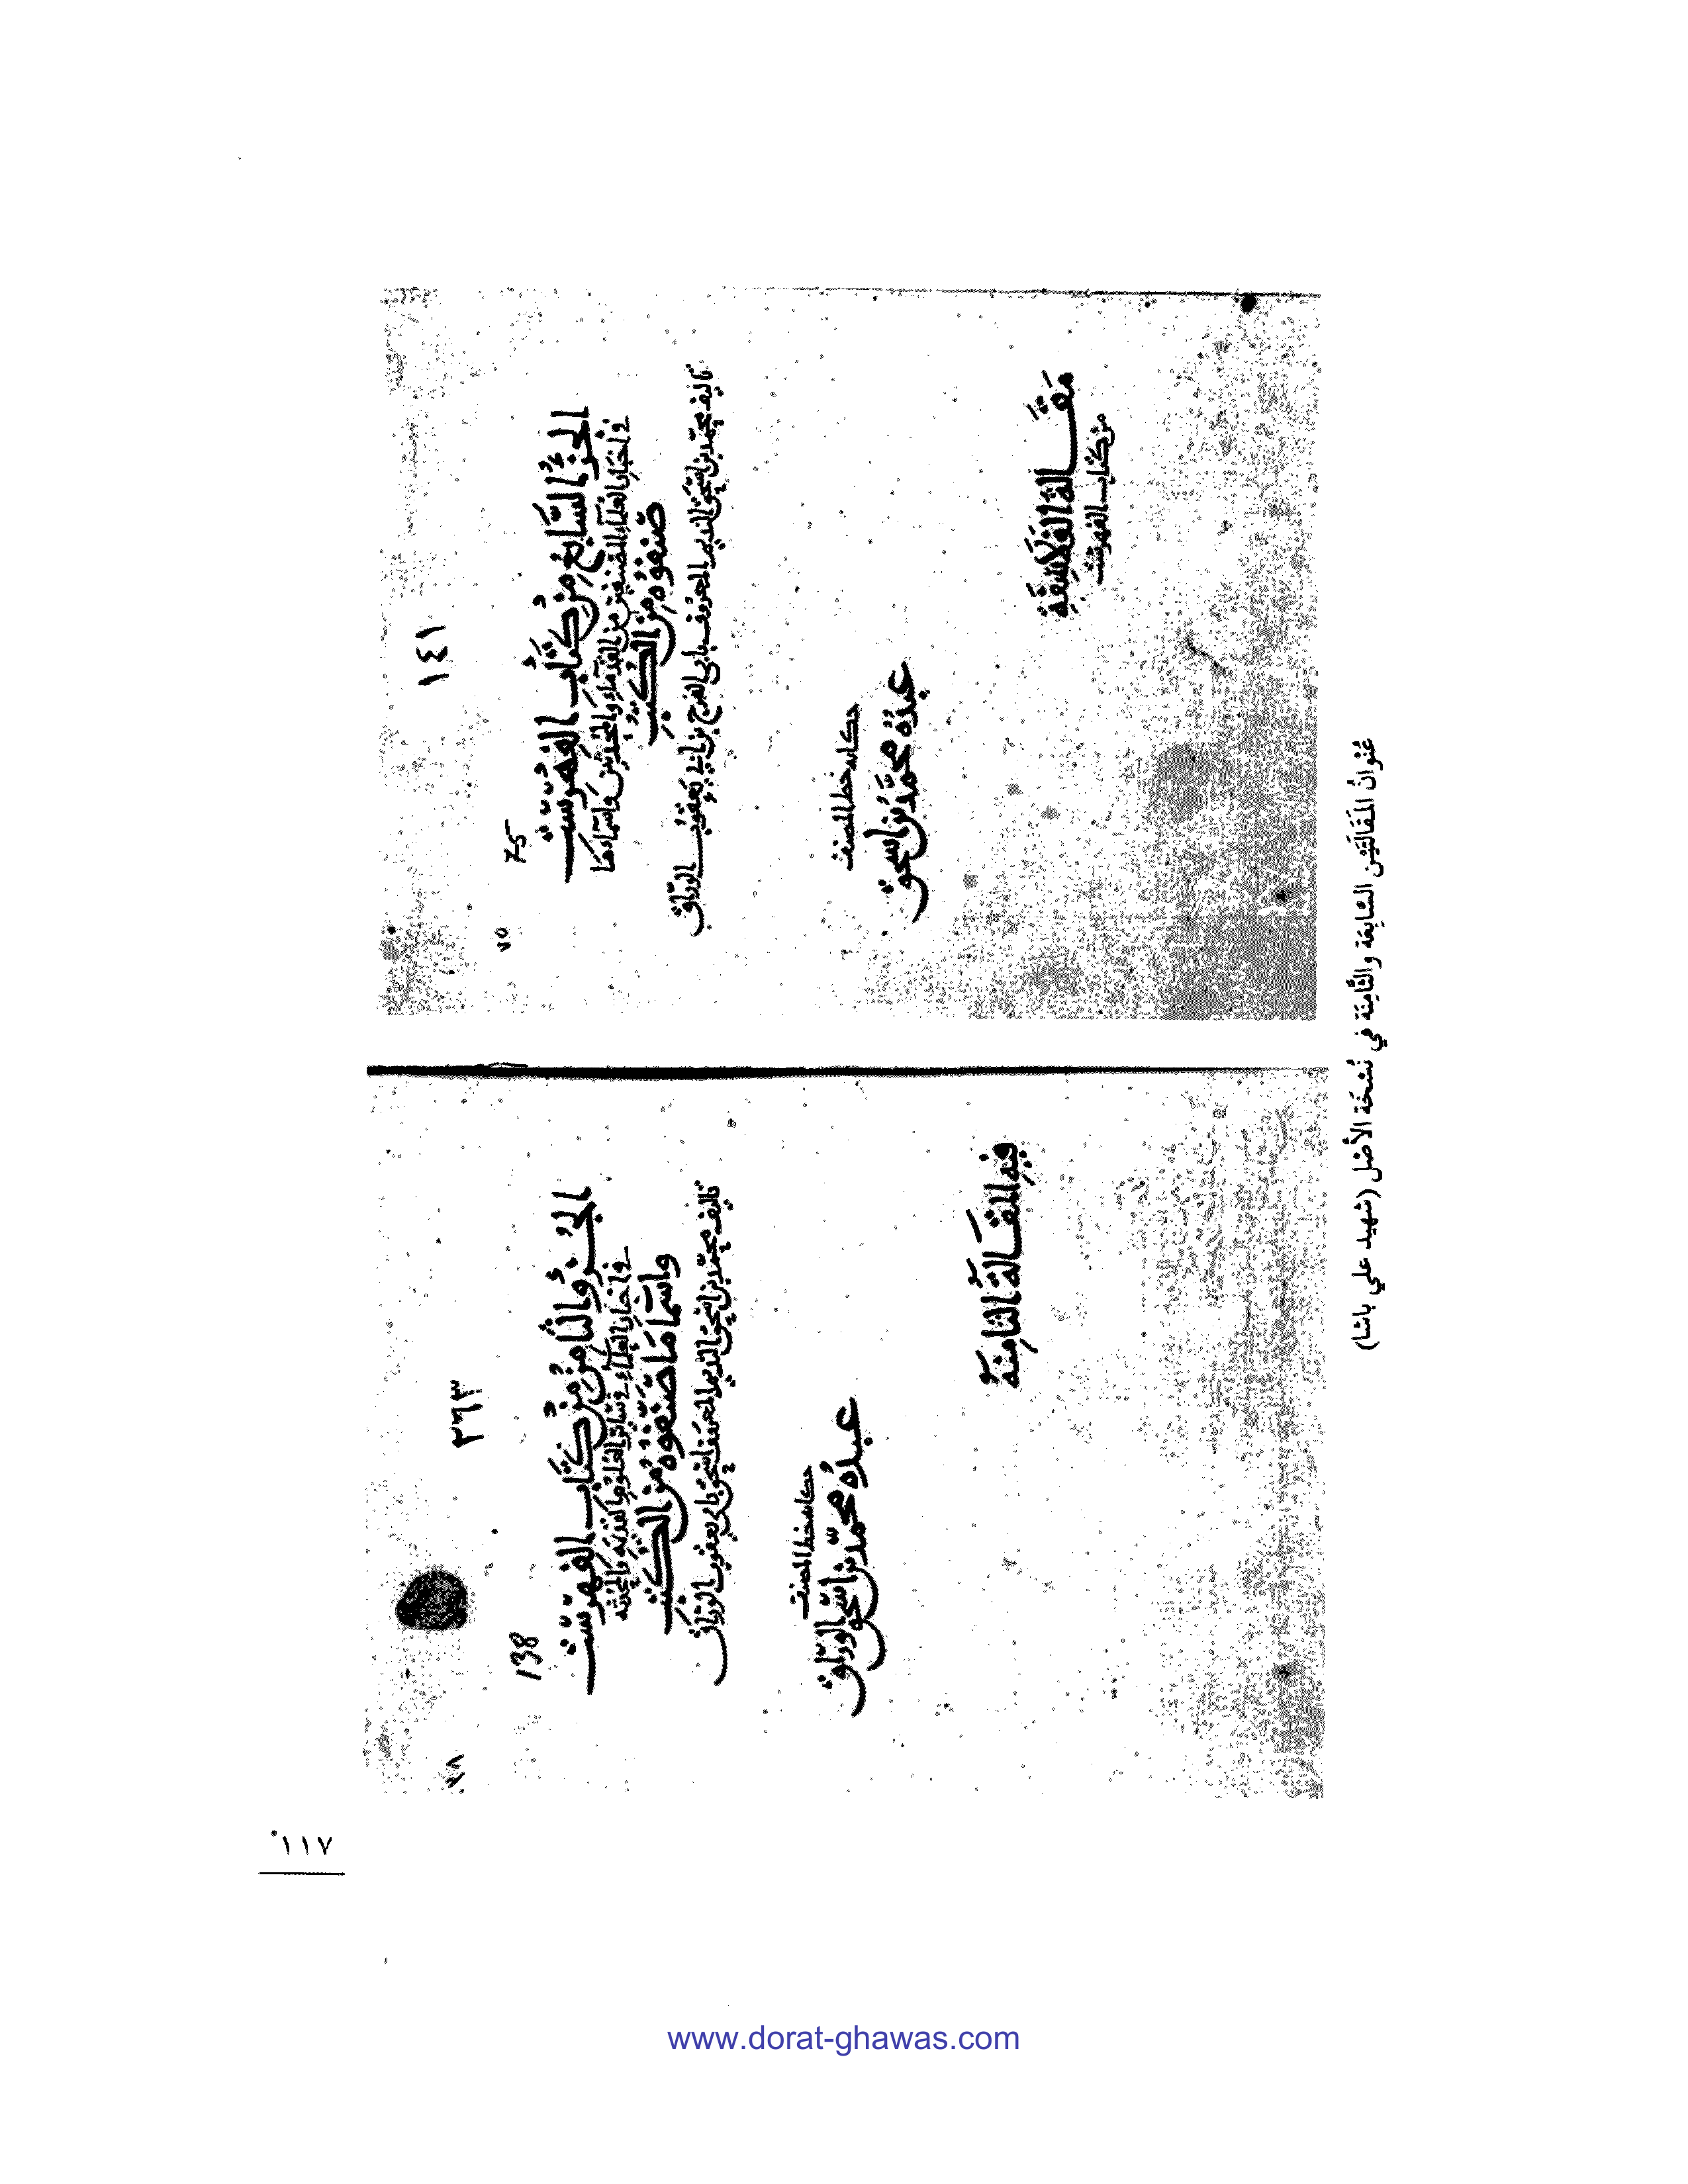 ١٤١
75
٧٥
الجزء السَّابع من كتاب الفهرست
في اخبار العلماء المصنفين من القدماء والمحدثين واسماء ما
صنفوه من الكتب
تاليف محمد بن اسحق النديم المعروف بابي الفرج بن ابي يعقوب الوراق
حكاية خط المصنف
عبده محمد بن اسحق
مقالة الفلاسفة
من كتاب الفهرست
٢٦٣
138
الجزء الثامن من كتاب الفهرست
في اخبار العلماء في سائر العلوم القديمة والمحدثة
واسما ما صنفوه من الكتب
تاليف محمد بن اسحق النديم المعروف اسحق بابي يعقوب الوراق
حكاية خط المصنف
عبده محمد بن اسحق
الوراق
فيه المقالة الثامنة
عُنْوانُ المَقَالَتَيْن السَّابِعَة والثَّامِنَة في نُسْخَة الأصْل (شهيد علي باشا)
١١٧
www.dorat-ghawas.com